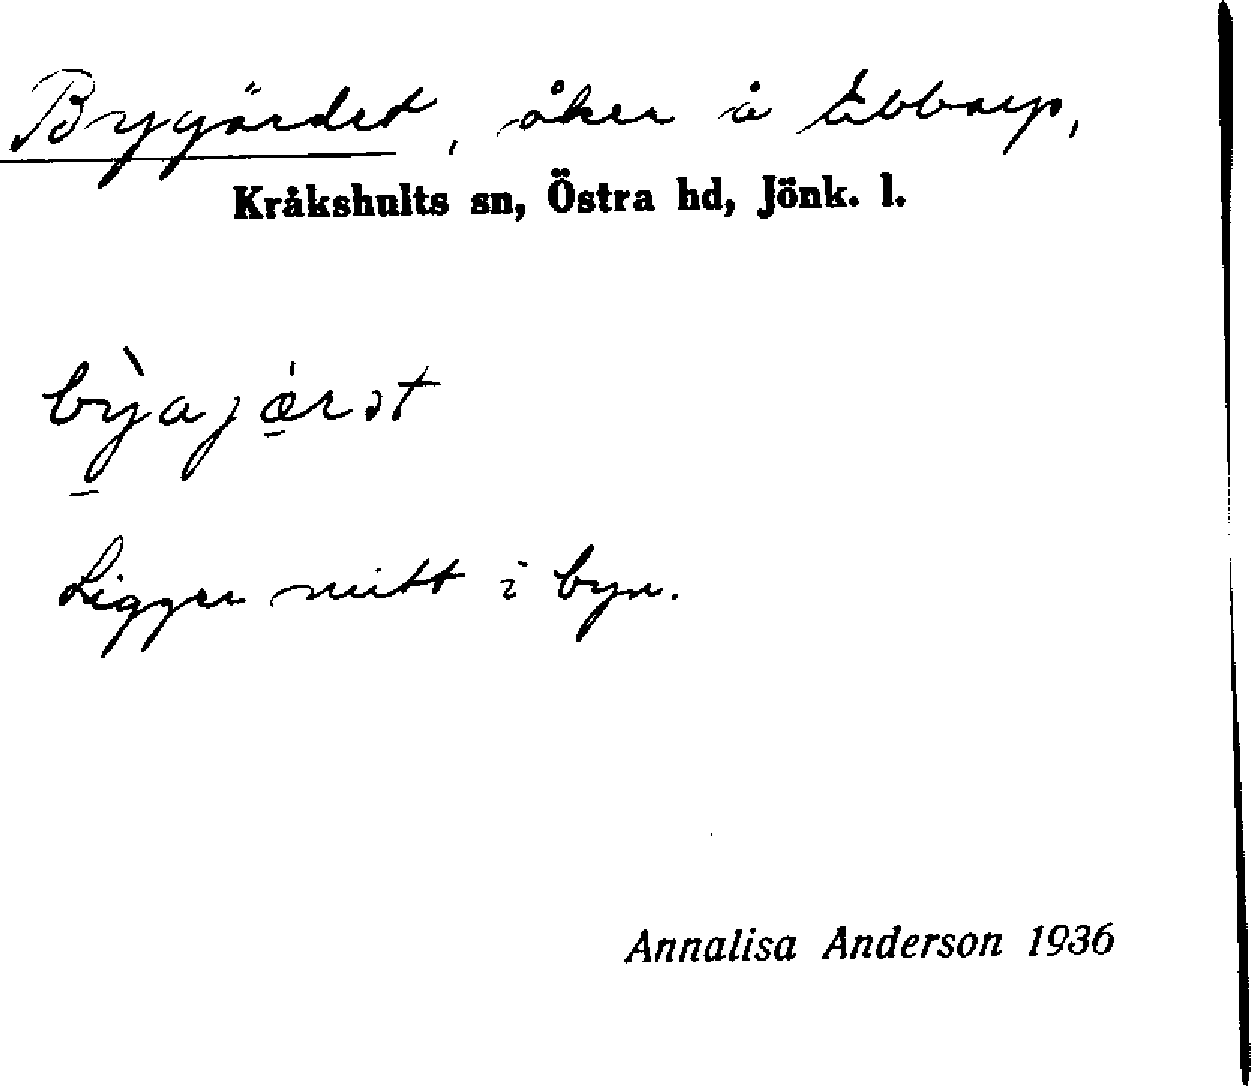 Bygärdet, åker å Äbbarp,
Kråkshults sn, Östra hd, Jönk. l.
bỳajæ̀rət
Ligger mitt i byn.
Annalisa Anderson 1936